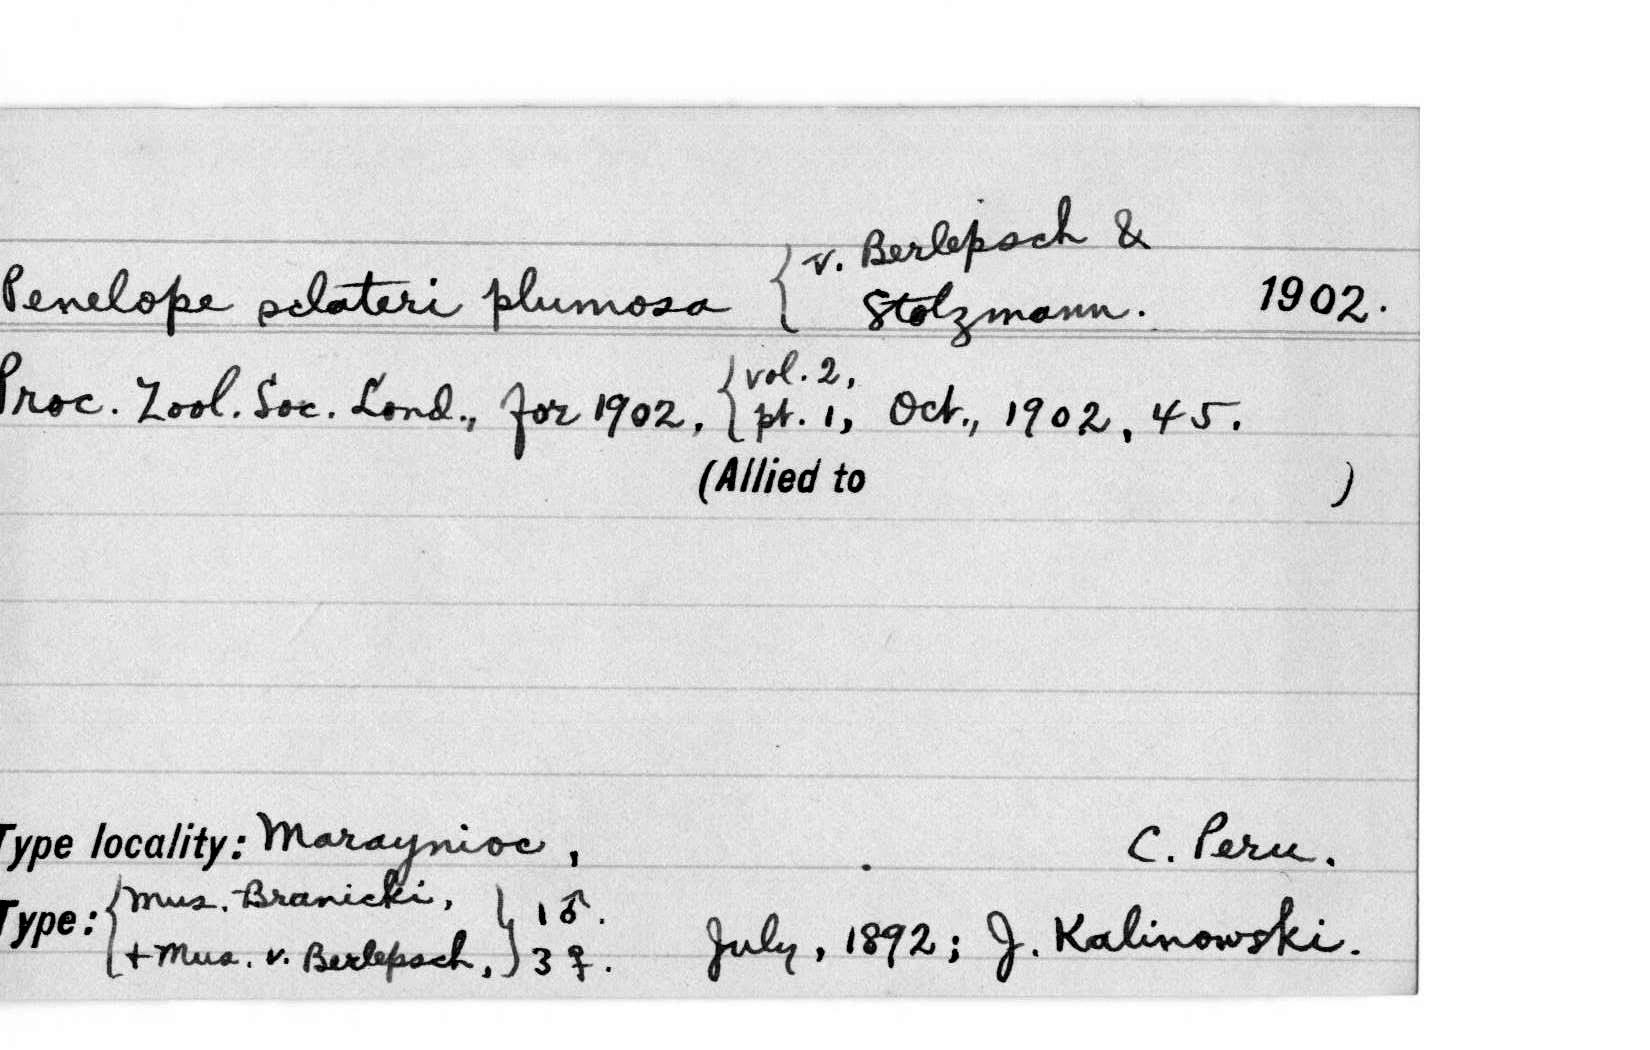 v. Berlepsch &
Penelope sclateri plumosa { Stolzmann. 1902.
vol. 2,
Proc. Zool. Soc. Lond., for 1902, { pt. 1, Oct., 1902, 45.
(Allied to )
Type locality: Maraynioc, C. Peru.
Type: { Mus. Branicki, } 1 ♂.
+ Mus. v. Berlepsch, } 3 ♀. July, 1892; J. Kalinowski.